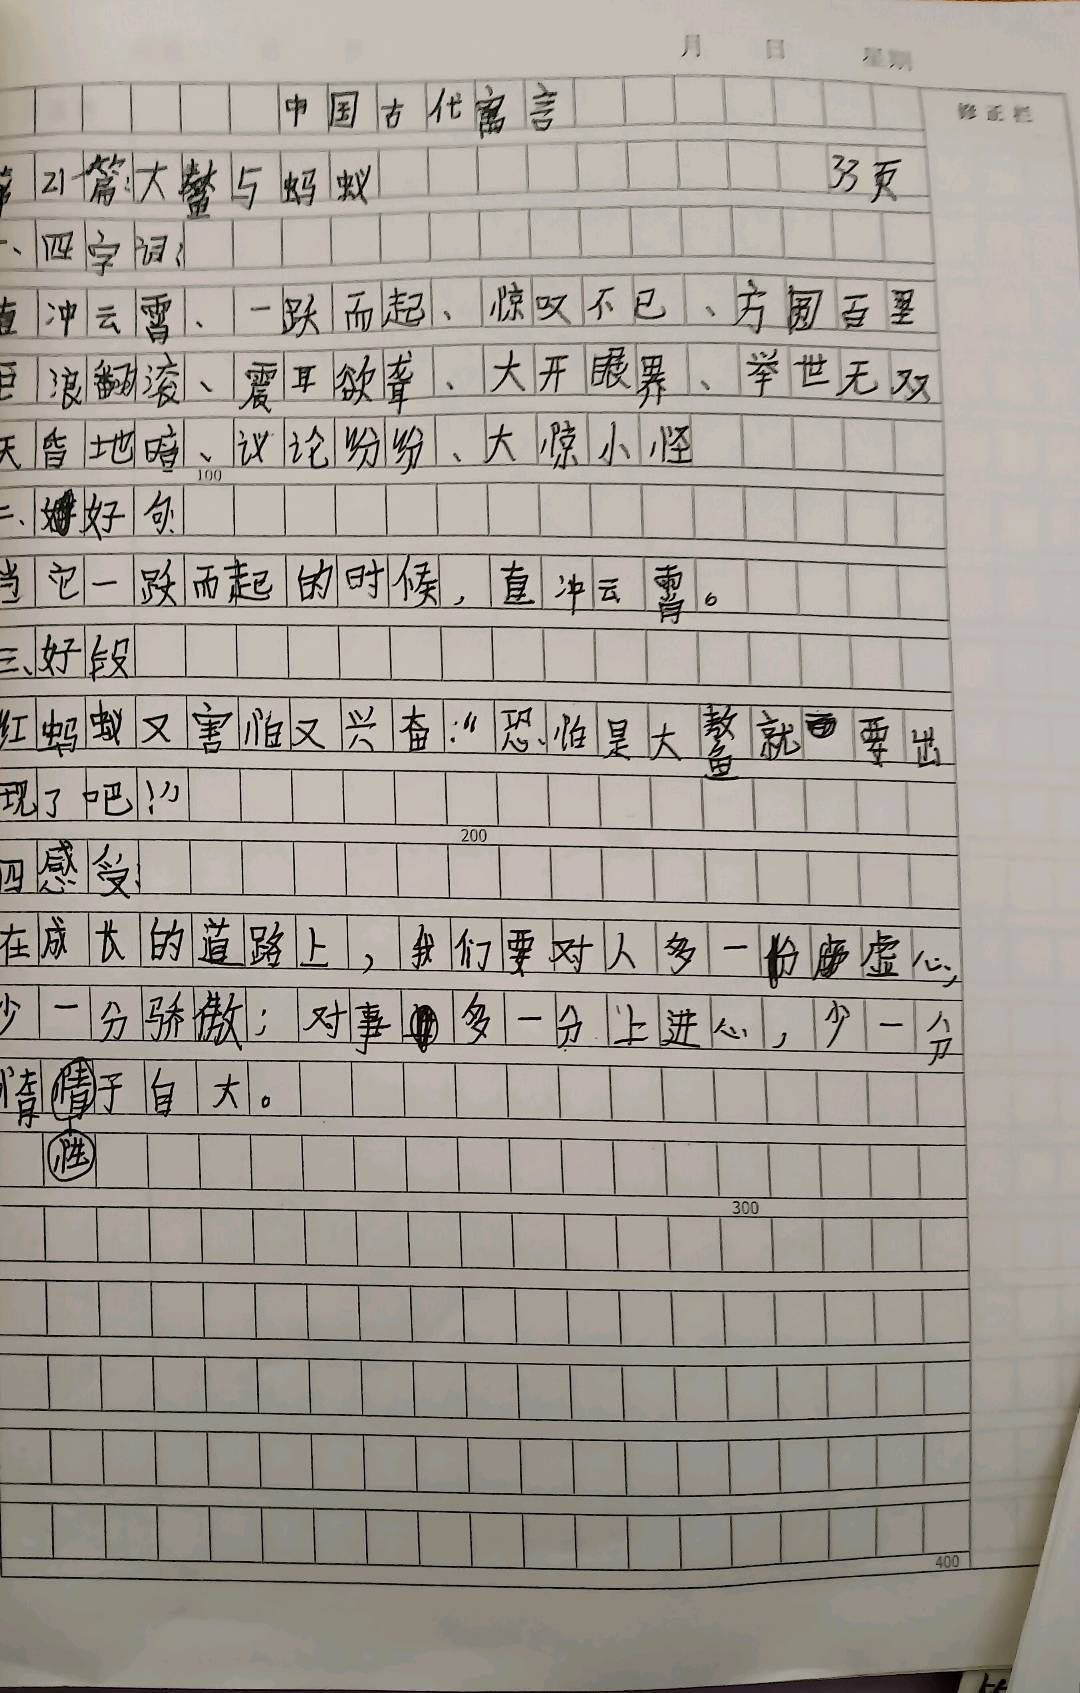 月 日 星期
修正栏
中国古代寓言
第21篇:大鳌与蚂蚁 33页
一、四字词:
直冲云霄、一跃而起、惊叹不已、方圆百里
巨浪翻滚、震耳欲聋、大开眼界、举世无双
天昏地暗、议论纷纷、大惊小怪
100
二、好句:
当它一跃而起的时候,直冲云霄。
三、好段
红蚂蚁又害怕又兴奋:"恐怕是大鳌就要出
现了吧!"
200
四感受:
在成长的道路上,我们要对人多一份虚心,
少一分骄傲;对事多一分上进心,少一分
惰情于自大。
性
300
400